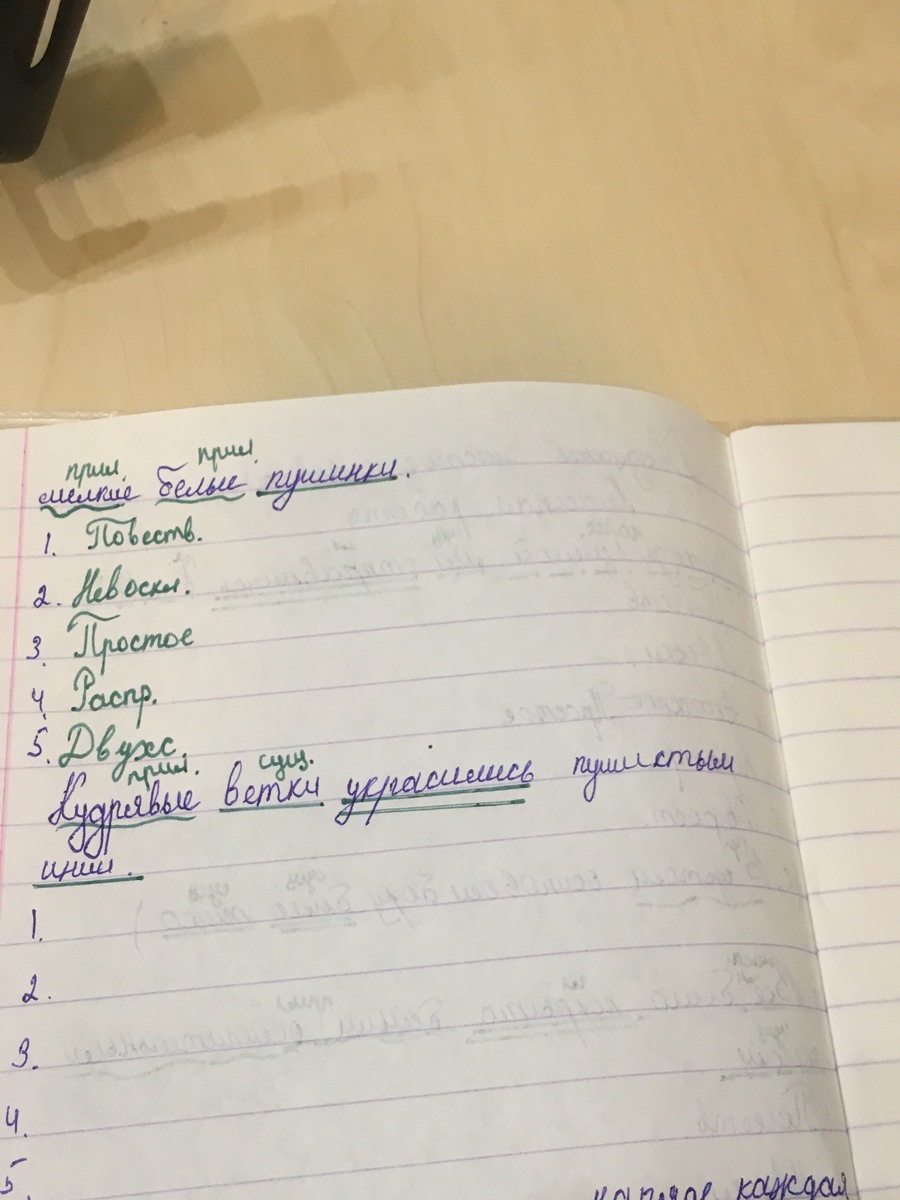 прил. прил.
мелкие белые пушинки.
1. Повеств.
2. Невоскл.
3. Простое
4. Распр.
5. Двухс.
прил. сущ.
Кудрявые ветки украсились пушистым
инии.
1.
2.
3.
4.
5.
каждая